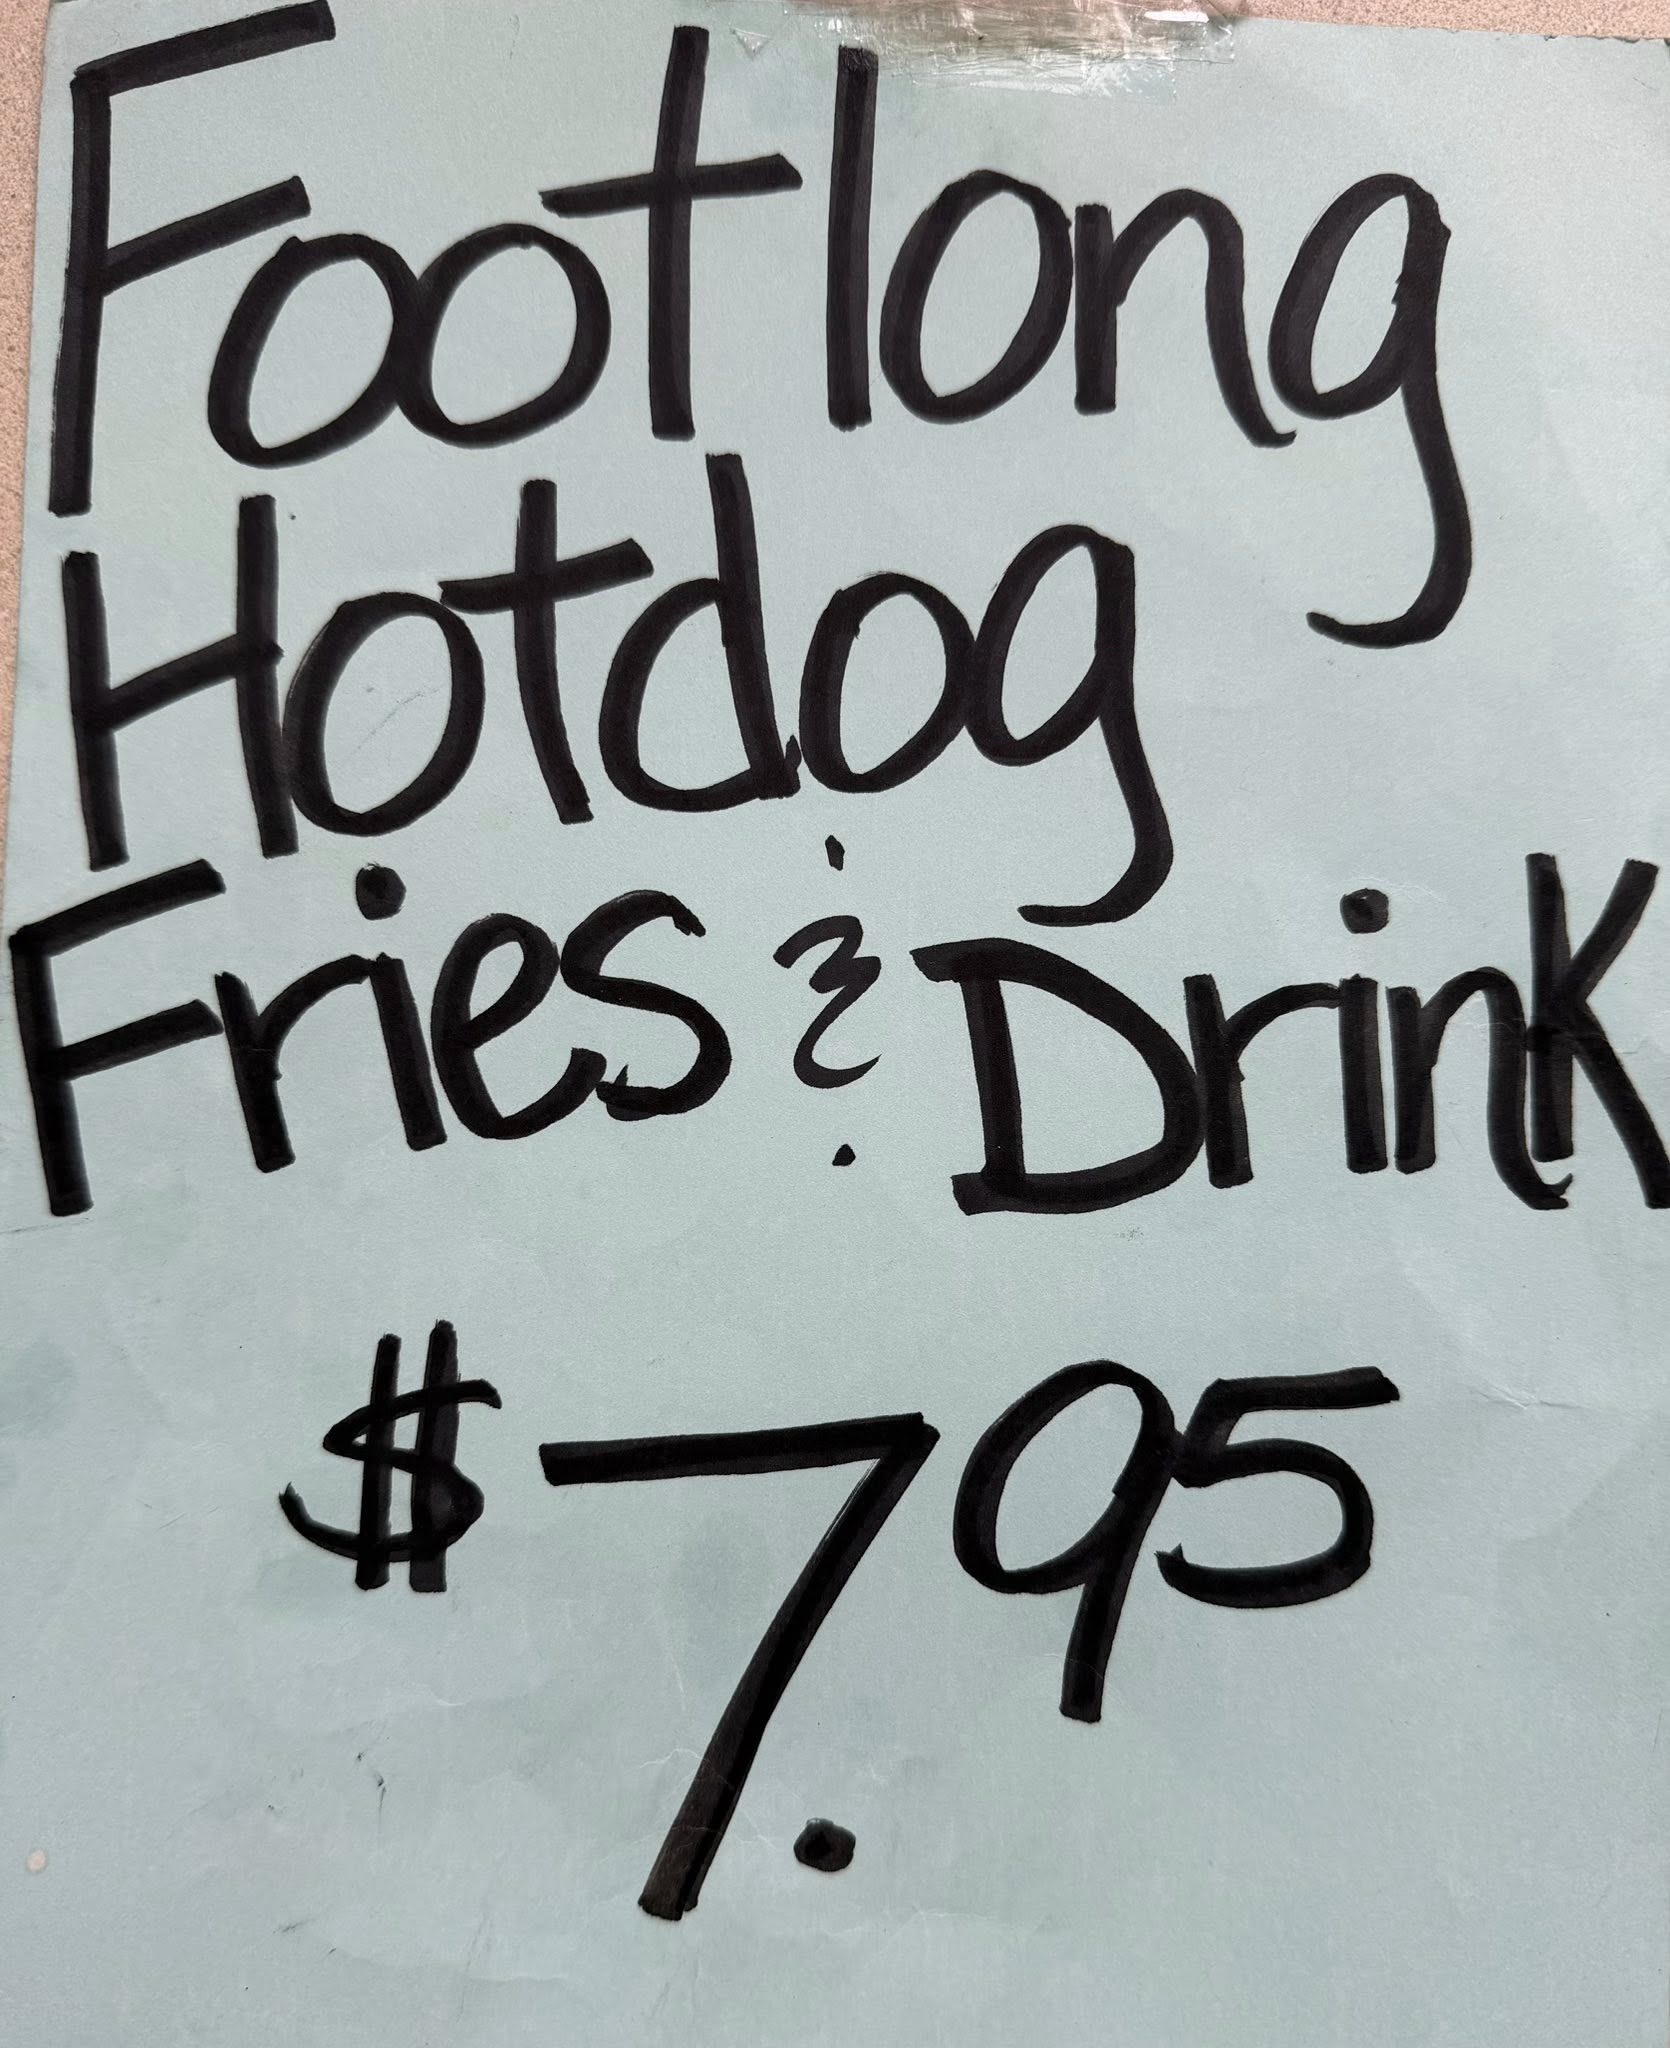 Footlong
Hotdog
Fries & Drink
$7.95